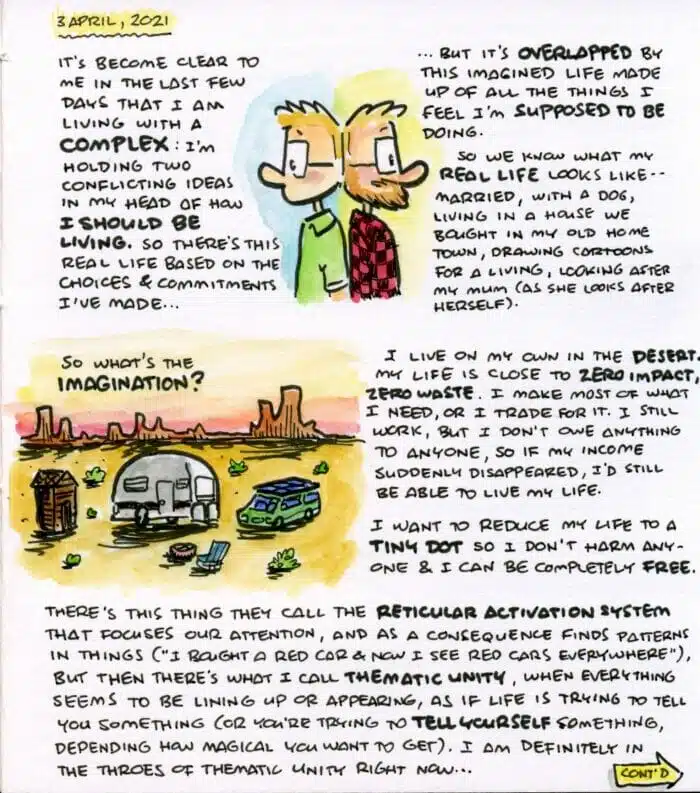 3 APRIL, 2021
IT'S BECOME CLEAR TO
ME IN THE LAST FEW
DAYS THAT I AM
LIVING WITH A
COMPLEX: I'M
HOLDING TWO
CONFLICTING IDEAS
IN MY HEAD OF HOW
I SHOULD BE
LIVING. SO THERE'S THIS
REAL LIFE BASED ON THE
CHOICES & COMMITMENTS
I'VE MADE...
... BUT IT'S OVERLAPPED BY
THIS IMAGINED LIFE MADE
UP OF ALL THE THINGS I
FEEL I'M SUPPOSED TO BE
DOING.
SO WE KNOW WHAT MY
REAL LIFE LOOKS LIKE--
MARRIED, WITH A DOG,
LIVING IN A HOUSE WE
BOUGHT IN MY OLD HOME
TOWN, DRAWING CARTOONS
FOR A LIVING, LOOKING AFTER
MY MUM (AS SHE LOOKS AFTER
HERSELF).
SO WHAT'S THE
IMAGINATION?
I LIVE ON MY OWN IN THE DESERT.
MY LIFE IS CLOSE TO ZERO IMPACT,
ZERO WASTE. I MAKE MOST OF WHAT
I NEED, OR I TRADE FOR IT. I STILL
WORK, BUT I DON'T OWE ANYTHING
TO ANYONE, SO IF MY INCOME
SUDDENLY DISAPPEARED, I'D STILL
BE ABLE TO LIVE MY LIFE.
I WANT TO REDUCE MY LIFE TO A
TINY DOT SO I DON'T HARM ANY-
ONE & I CAN BE COMPLETELY FREE.
THERE'S THIS THING THEY CALL THE RETICULAR ACTIVATION SYSTEM
THAT FOCUSES OUR ATTENTION, AND AS A CONSEQUENCE FINDS PATTERNS
IN THINGS ("I BOUGHT A RED CAR & NOW I SEE RED CARS EVERYWHERE"),
BUT THEN THERE'S WHAT I CALL THEMATIC UNITY, WHEN EVERYTHING
SEEMS TO BE LINING UP OR APPEARING, AS IF LIFE IS TRYING TO TELL
YOU SOMETHING (OR YOU'RE TRYING TO TELL YOURSELF SOMETHING,
DEPENDING HOW MAGICAL YOU WANT TO GET). I AM DEFINITELY IN
THE THROES OF THEMATIC UNITY RIGHT NOW...
CONT'D